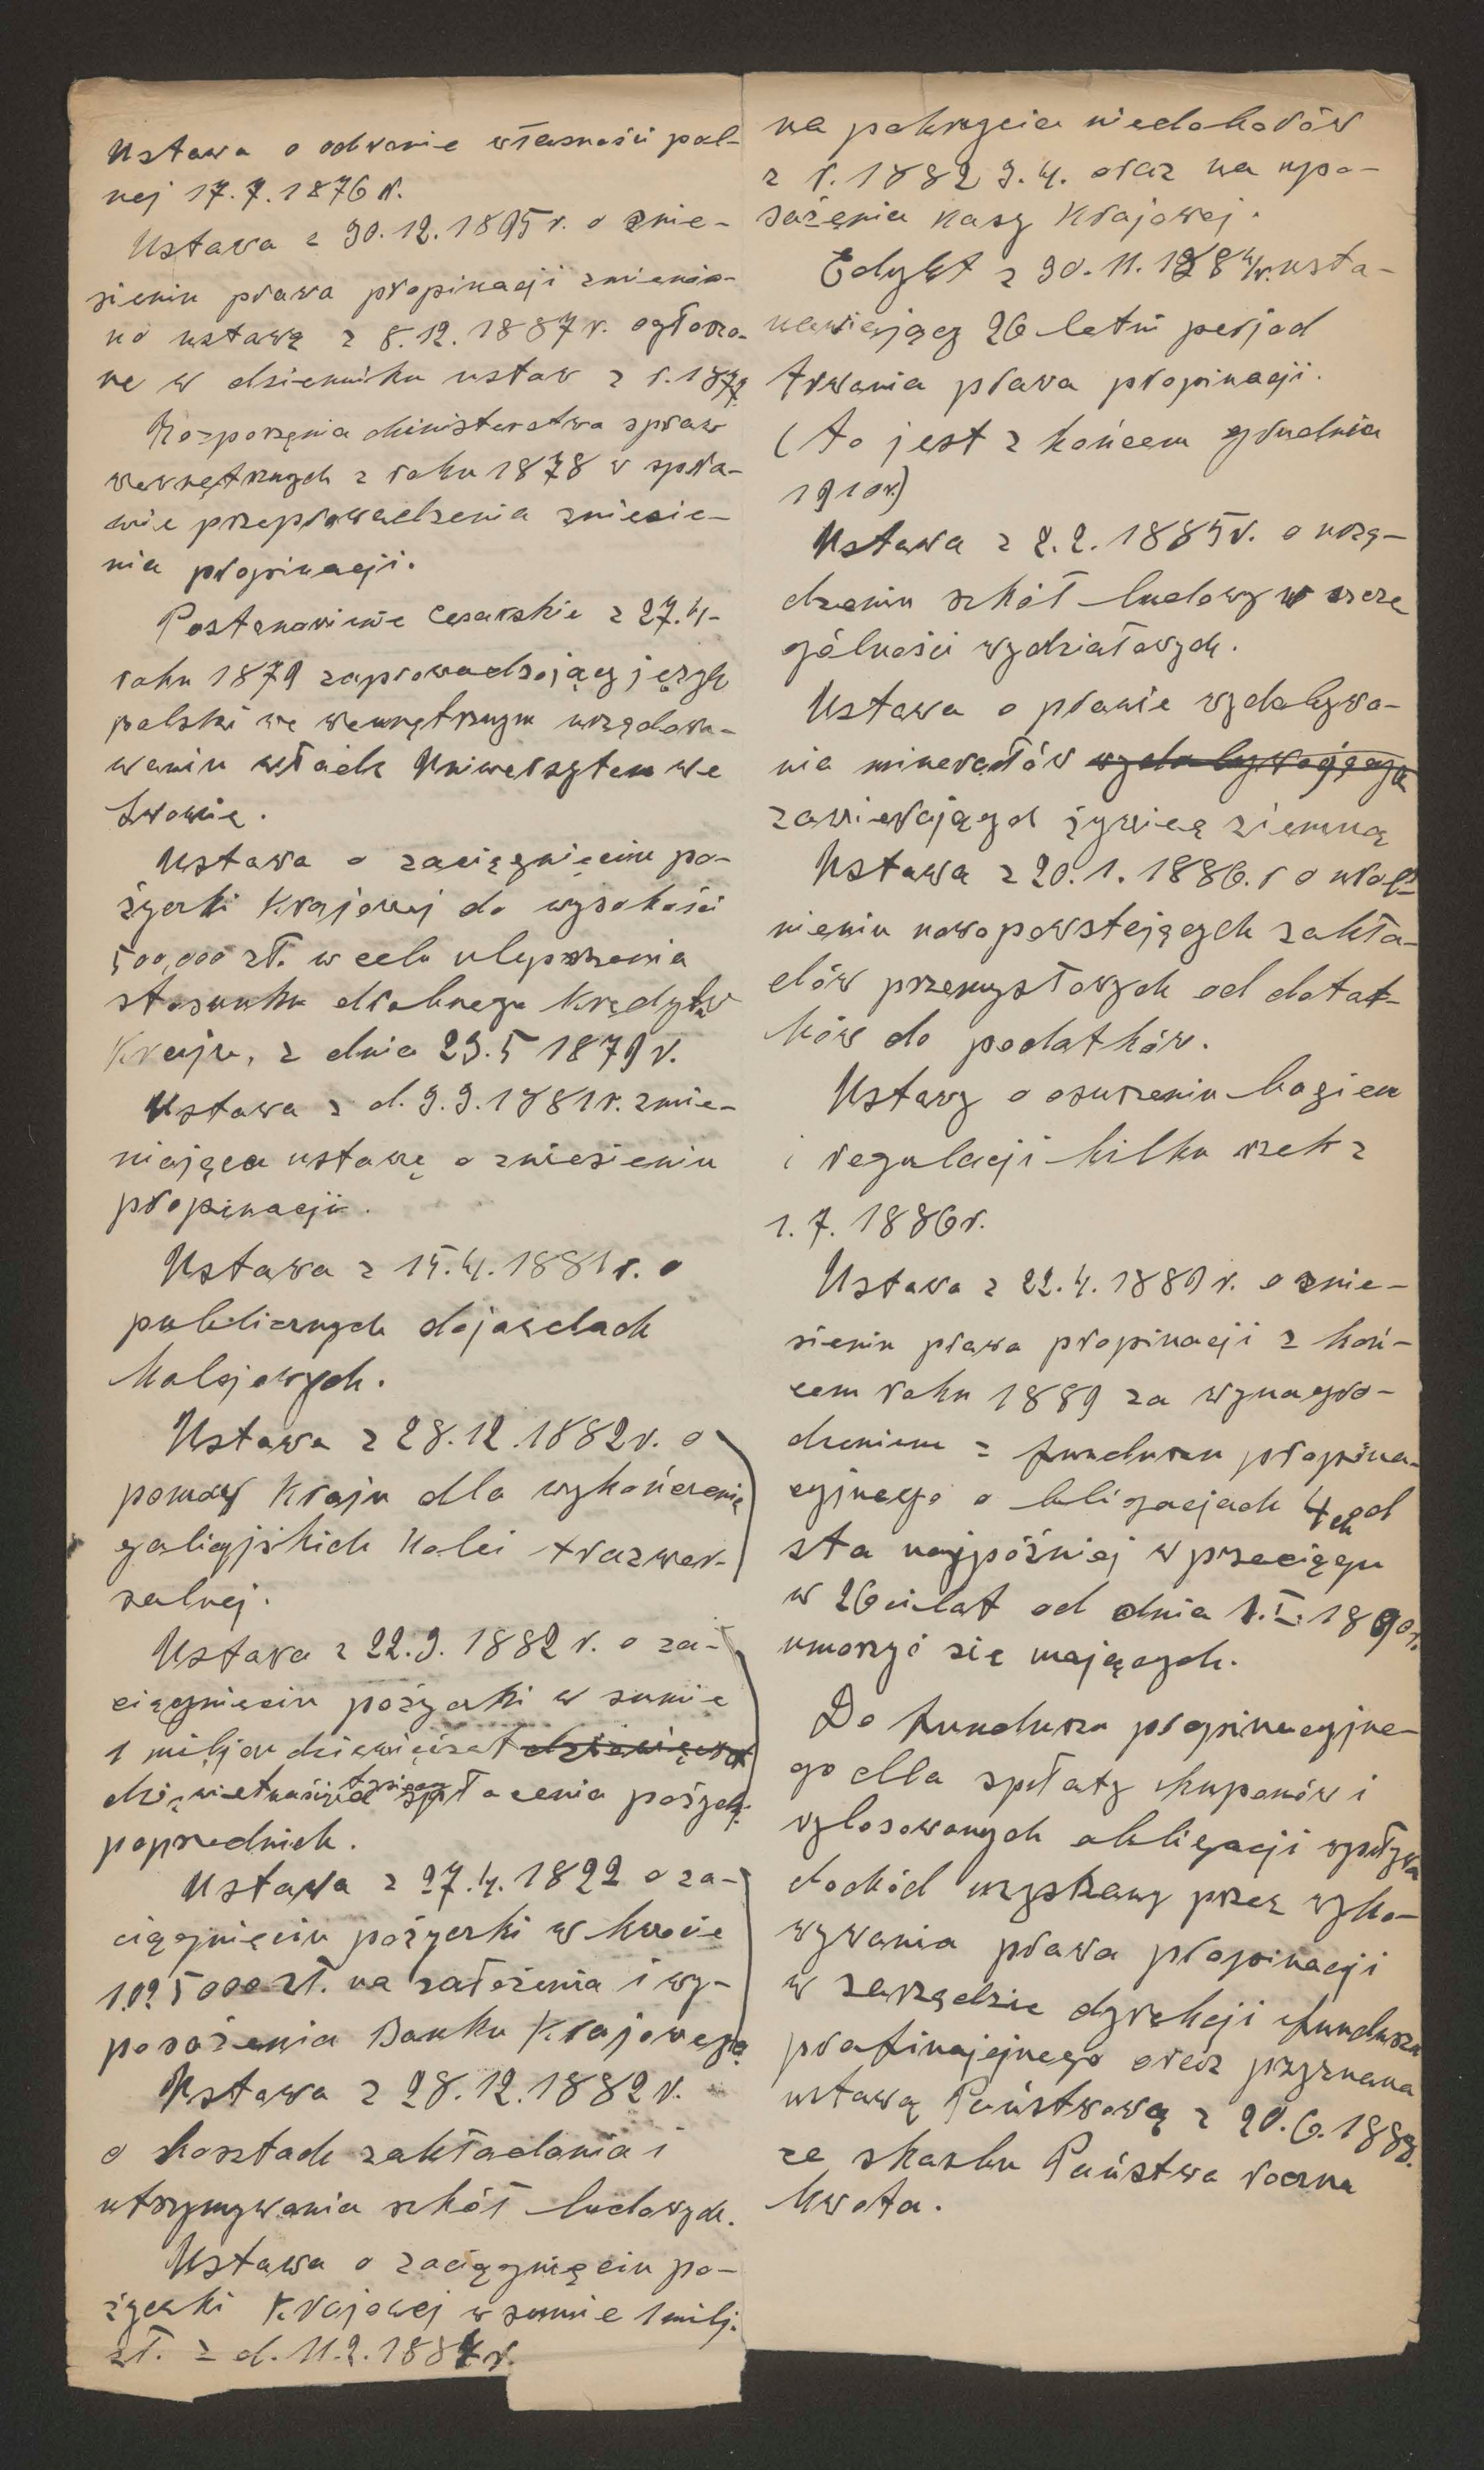 Ustawa o odronie własności pol-
nej 17.7.1876 r.
Ustawa z 30.12.1895 r. o znie-
sieniu prawa propinacji zmienio-
no ustawą z 8.12.1887 r. ogłoszo-
ne w dzienniku ustaw z r. 1877
Rozporzęnia Ministerstwa spraw
wewnętrznych z roku 1878 w spra-
wie przeprowadzenia zniesie-
nia propinacji.
Postanowienie Cesarskie z 27.4-
roku 1879 zaprowadzający język
polski we wewnętrznym urzędowa-
waniu władz Uniwersytetu we
Lwowie.
Ustawa o zaciągnięciu po-
życzki Krajowej do wysokości
500,000 zł. w celu ulepszenia
stosunku drobnego Kredytu
Kraju, z dnia 23.5 1879 r.
Ustawa z d. 3.3.1881 r. zmie-
niająca ustawę o zniesieniu
propinacji.
Ustawa z 15.4.1881 r. o
publicznych dojazdach
Kolejowych.
Ustawa z 28.12.1882 r. o
pomocy Kraju dla wykończenia
galicyjskich Kolei trazwer-
salnej.
Ustawa z 22.3.1882 r. o za-
ciągnieciu pożyczki w sumie
1 miljon dziewięćset dziewięćset
dziewietnaście tysięcy spłacenia pożyczki
poprzednich.
Ustawa z 27.4.1822 o za-
ciągnięciu pożyczki w kwocie
1.025000 zł. na założenia i wy-
posożenia Banku Krajowego
Ustawa z 28.12.1882 r.
o kosztach zakładania i
utrzymywania szkół ludowych.
Ustawa o zaciągnięciu po-
życzki Krajowej w sumie 1 milj.
zł. z d. 11.2.1884 r.
na pokrycia niedoborów
z r. 1882 3.4. oraz na wypo-
sażenia Kasy Krajowej.
Edykt z 30.11.1884 r. usta-
nawiający 26 letni perjod
trwania prawa propinacji.
(to jest z końcem grudnia
1910 r.)
Ustawa z 2.2.1885 r. o urzą-
dzeniu szkół ludowy w szcze
gólności wydziałowych.
Ustawa o prawie wydobywa-
nia minerałów wydobywających
zawierających żywicę ziemną
Ustawa z 20.1.1886. r o uwol-
nieniu nowopowstających zakła-
dów przemysłowych od dotat-
ków do podatków.
Ustawy o osuszeniu bagien
i regulacji kilku rzek z
1.7.1886 r.
Ustawa z 22.4.1889 r. o znie-
sieniu prawa propinacji z koń-
cem roku 1889 za wynagro-
dzeniem z funduszu propina-
cyjnego o bligacjach 4 ch od
sta najpóźniej w przeciągu
w 26ciu lat od dnia 1.I.1890 r.
umorzyć się mających.
Do funduszu propinacyjne-
go dla spłaty kuponów i
wylosowanych obligacji wpływa
dochód uzyskany przez wyko-
wywania prawa propinacji
w zarządzie dyrekcji funduszu
prafinajejnego oraz przyznana
ustawą Państwową z 20.6.1888.
ze skarbu Państwa roczna
kwota.